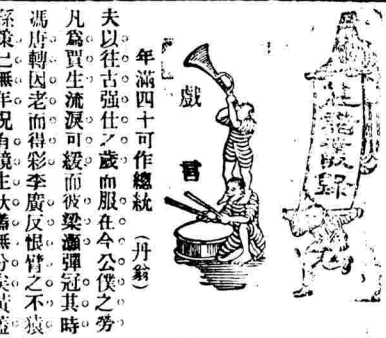 莊諧叢錄
戲言
年滿四十可作總統 (丹翁)
夫以往古强仕之歲而服在今公僕之勞
凡爲賈生流淚可緩而彼梁灝彈冠其時
馮唐轉因老而得彩李廣反恨臂之不猿
孫策已無年況有鏡生秋無矣黃蓋